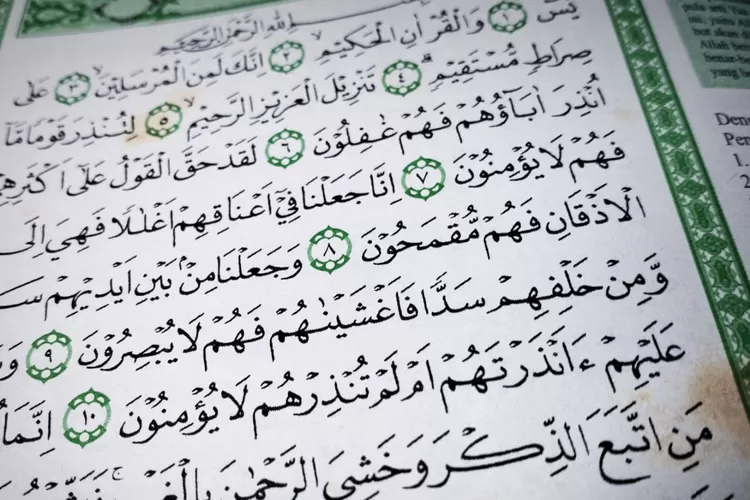 اللهِ الرَّحْمٰنِ الرَّحِيْمِ
يٰسۤ ۝١ وَالْقُرْاٰنِ الْحَكِيْمِۙ ۝٢ اِنَّكَ لَمِنَ الْمُرْسَلِيْنَۙ ۝٣ عَلٰى
صِرَاطٍ مُّسْتَقِيْمٍۗ ۝٤ تَنْزِيْلَ الْعَزِيْزِ الرَّحِيْمِۙ ۝٥ لِتُنْذِرَ قَوْمًا مَّآ
اُنْذِرَ اٰبَاۤؤُهُمْ فَهُمْ غٰفِلُوْنَ ۝٦ لَقَدْ حَقَّ الْقَوْلُ عَلٰٓى اَكْثَرِهِمْ
فَهُمْ لَا يُؤْمِنُوْنَ ۝٧ اِنَّا جَعَلْنَا فِيْٓ اَعْنَاقِهِمْ اَغْلٰلًا فَهِيَ اِلَى
الْاَذْقَانِ فَهُمْ مُّقْمَحُوْنَ ۝٨ وَجَعَلْنَا مِنْۢ بَيْنِ اَيْدِيْهِمْ
وَّمِنْ خَلْفِهِمْ سَدًّا فَاَغْشَيْنٰهُمْ فَهُمْ لَا يُبْصِرُوْنَ ۝٩
عَلَيْهِمْ ءَاَنْذَرْتَهُمْ اَمْ لَمْ تُنْذِرْهُمْ لَا يُؤْمِنُوْنَ ۝١٠ اِنَّمَا
مَنِ اتَّبَعَ الذِّكْرَ وَخَشِيَ الرَّحْمٰنَ بِالْغَيْبِۚ
but akan
Allah
yang
1.
2